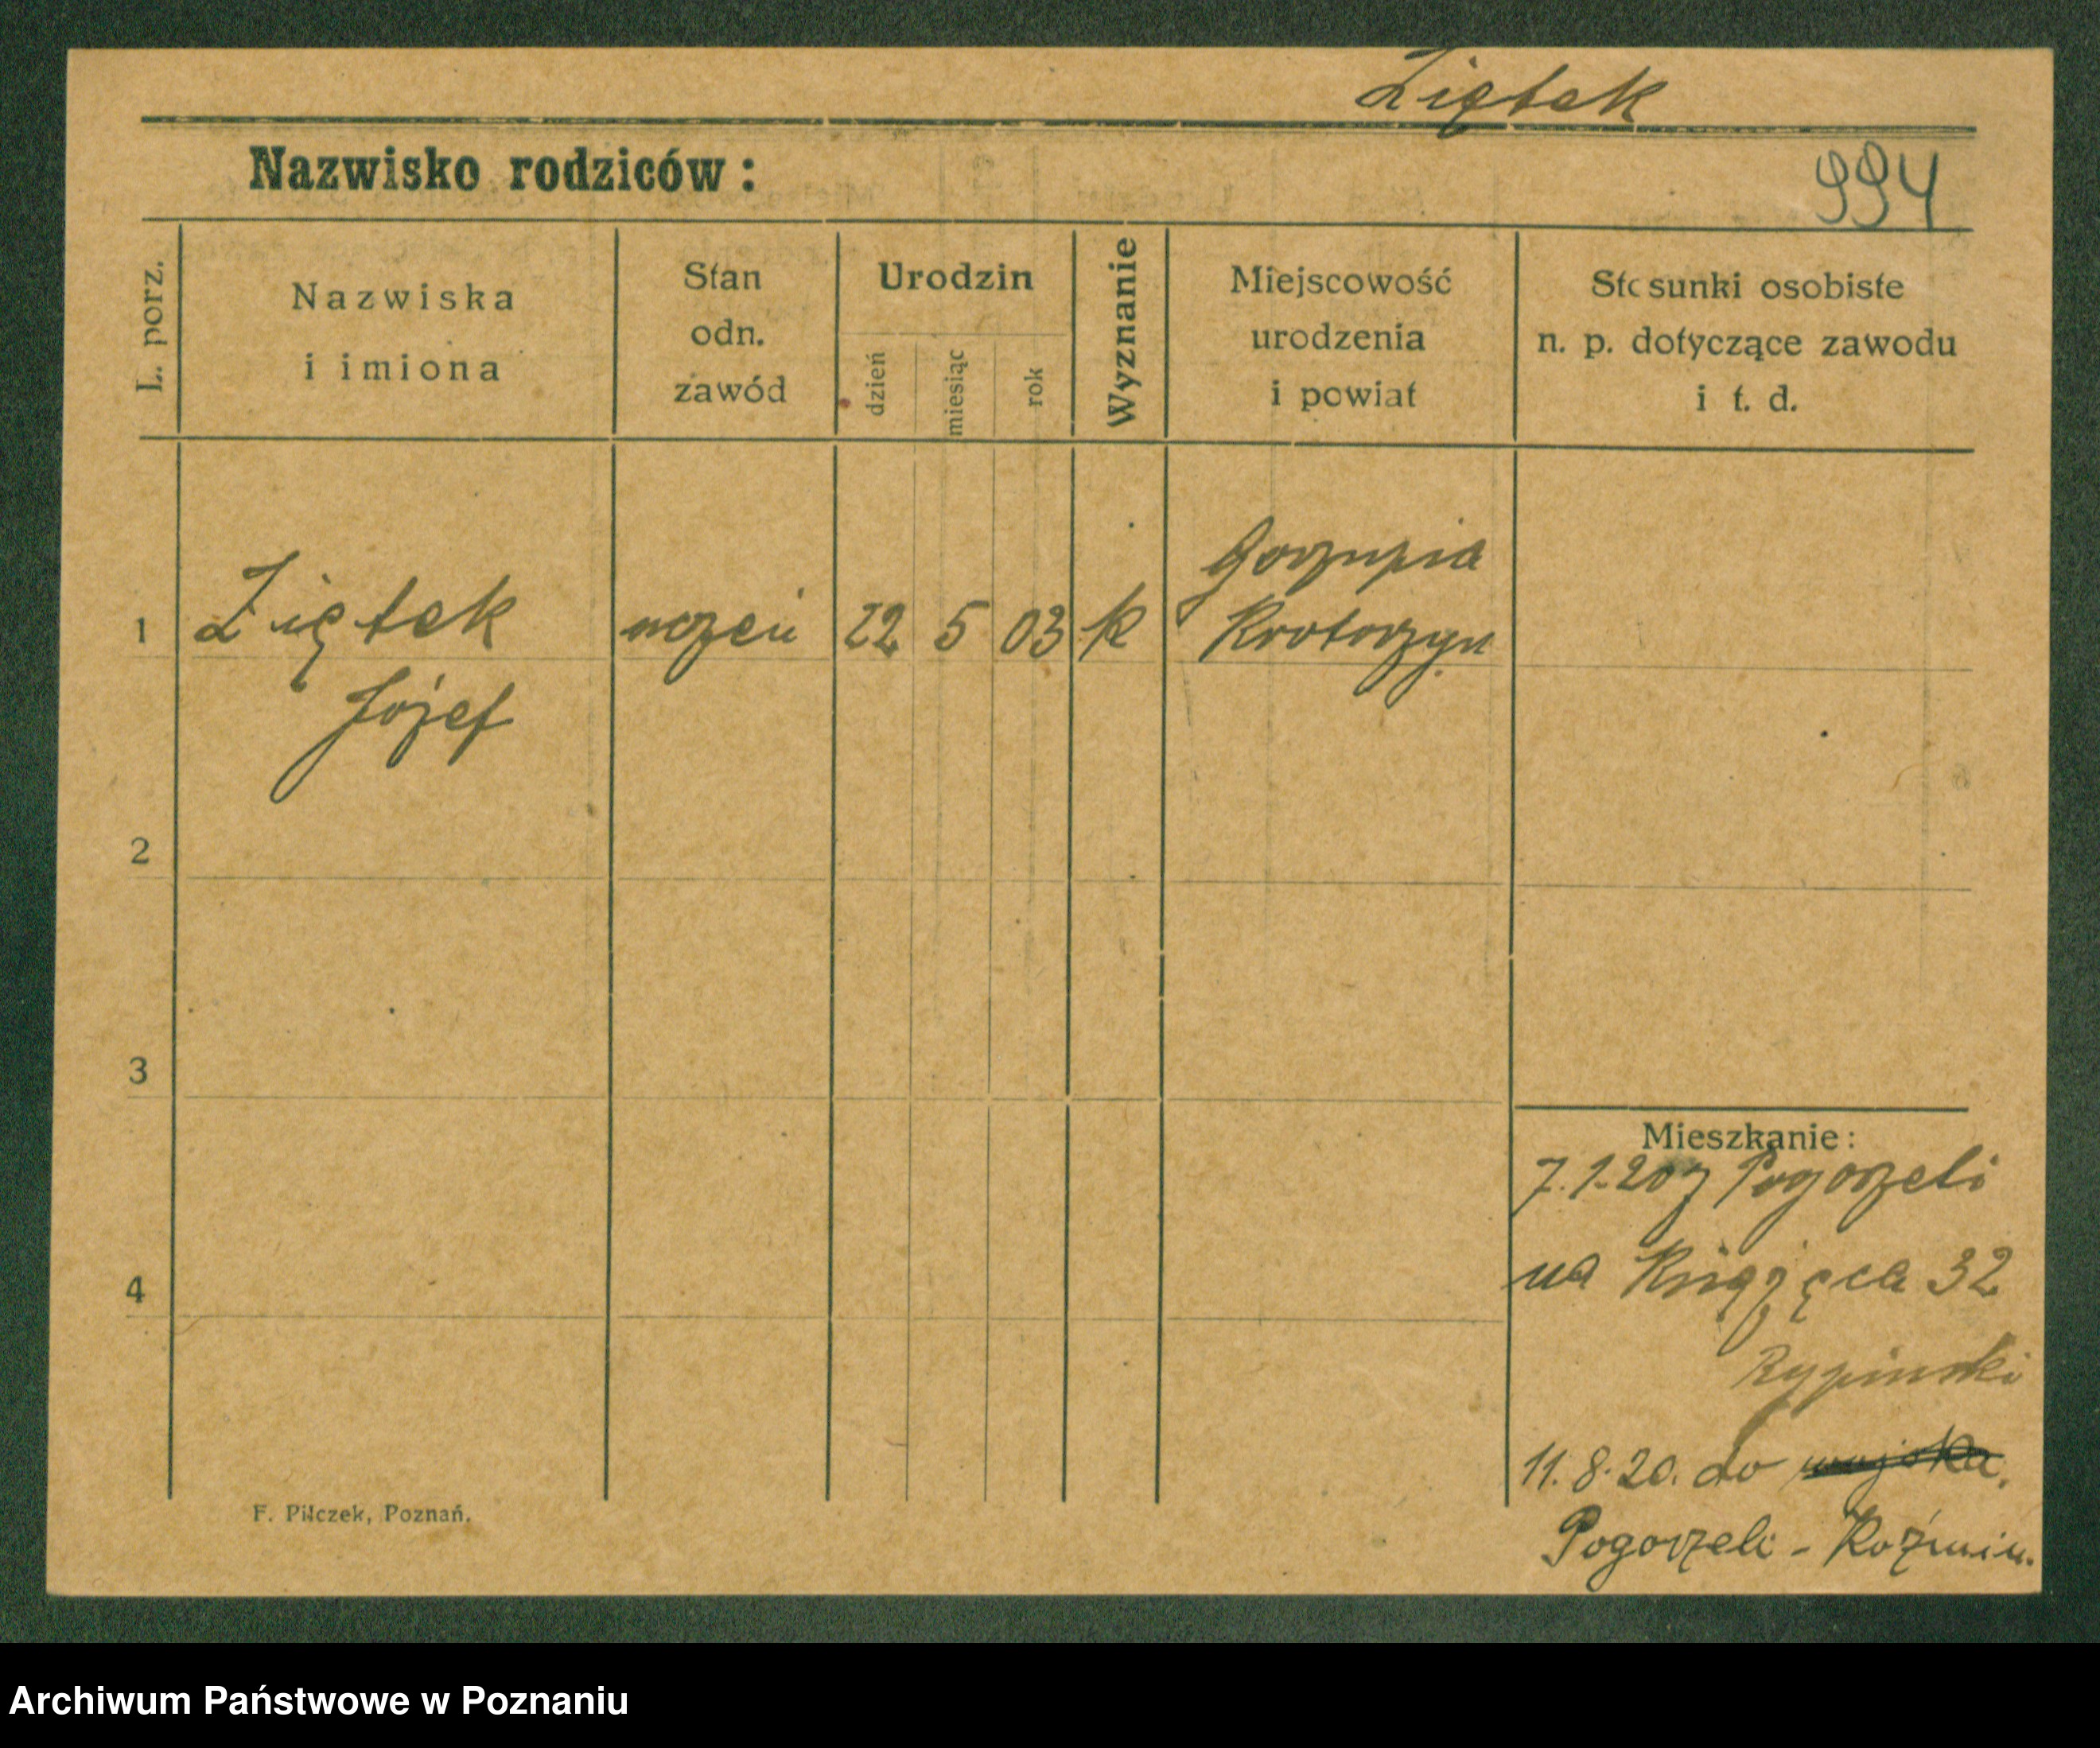 Ziętek
Nazwisko rodziców:
994
L. porz.
Nazwiska
i imiona
Stan
odn.
zawód
Urodzin
dzień
miesiąc
rok
Wyznanie
Miejscowość
urodzenia
i powiat
Stosunki osobiste
n. p. dotyczące zawodu
i t. d.
1
Ziętek
Józef
uczeń
22
5
03
k
Gorzupia
Krotoszyn
2
3
4
Mieszkanie:
7.1.20 z Pogorzeli
na Książęca 32
Rypinski
11.8.20. do wojska.
Pogorzeli - Koźmin.
F. Pilczek, Poznań.
Archiwum Państwowe w Poznaniu